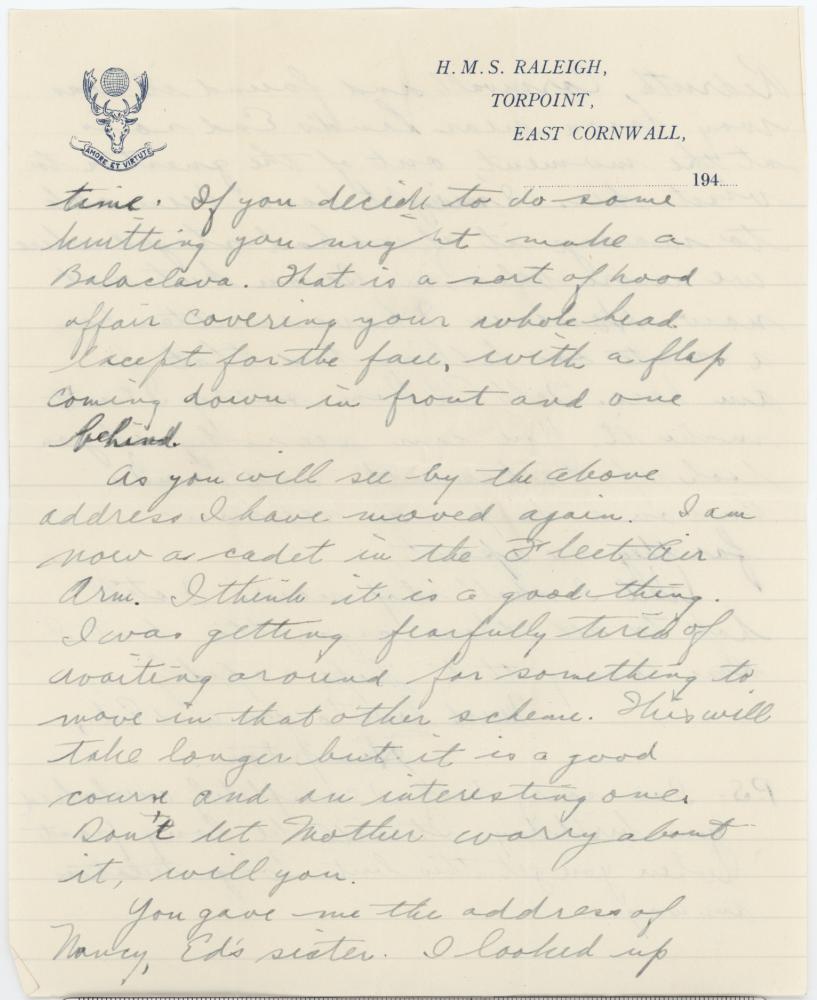 H. M. S. RALEIGH,
TORPOINT,
EAST CORNWALL,
AMORE ET VIRTUTE
194
time. If you decide to do some
knitting you might make a
Balaclava. That is a sort of hood
affair covering your whole head
except for the face, with a flap
coming down in front and one
behind.
As you will see by the above
address I have moved again. I am
now a cadet in the Fleet Air
Arm. I think it is a good thing.
I was getting fearfully tired of
waiting around for something to
move in that other scheme. This will
take longer but it is a good
course and an interesting one.
Don't let Mother worry about
it, will you.
You gave me the address of
Nancy, Ed's sister. I looked up